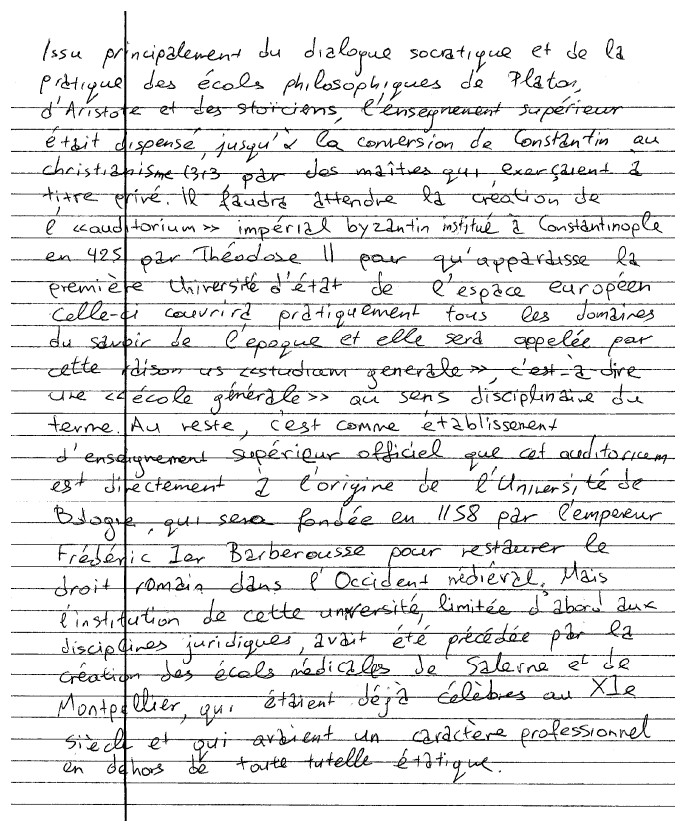 Issu principalement du dialogue socratique et de la
pratique des écols philosophiques de Platon,
d'Aristote et des stoïciens, l'enseignement supérieur
était dispensé, jusqu'à la conversion de Constantin au
christianisme (313 par des maîtres qui exerçaient à
titre privé. Il faudra attendre la création de
l' «auditorium» impérial byzantin institué à Constantinople
en 425 par Théodose II pour qu'apparaisse la
première Université d'état de l'espace européen
Celle-ci couvrira pratiquement tous les domaines
du savoir de l'époque et elle sera appelée par
cette raison us «studium generale», c'est-à-dire
une «école générale» au sens disciplinaire du
terme. Au reste, c'est comme établissement
d'enseignement supérieur officiel que cet auditorium
est directement à l'origine de l'Université de
Bologne, qui sera fondée en 1158 par l'empereur
Frédéric Ier Barberousse pour restaurer le
droit romain dans l'Occident médiéval. Mais
l'institution de cette université, limitée d'abord aux
disciplines juridiques, avait été précédée par la
création des écols médicales de Salerne et de
Montpellier, qui étaient déjà célèbres au XIe
siècle et qui avaient un caractère professionnel
en dehors de toute tutelle étatique.